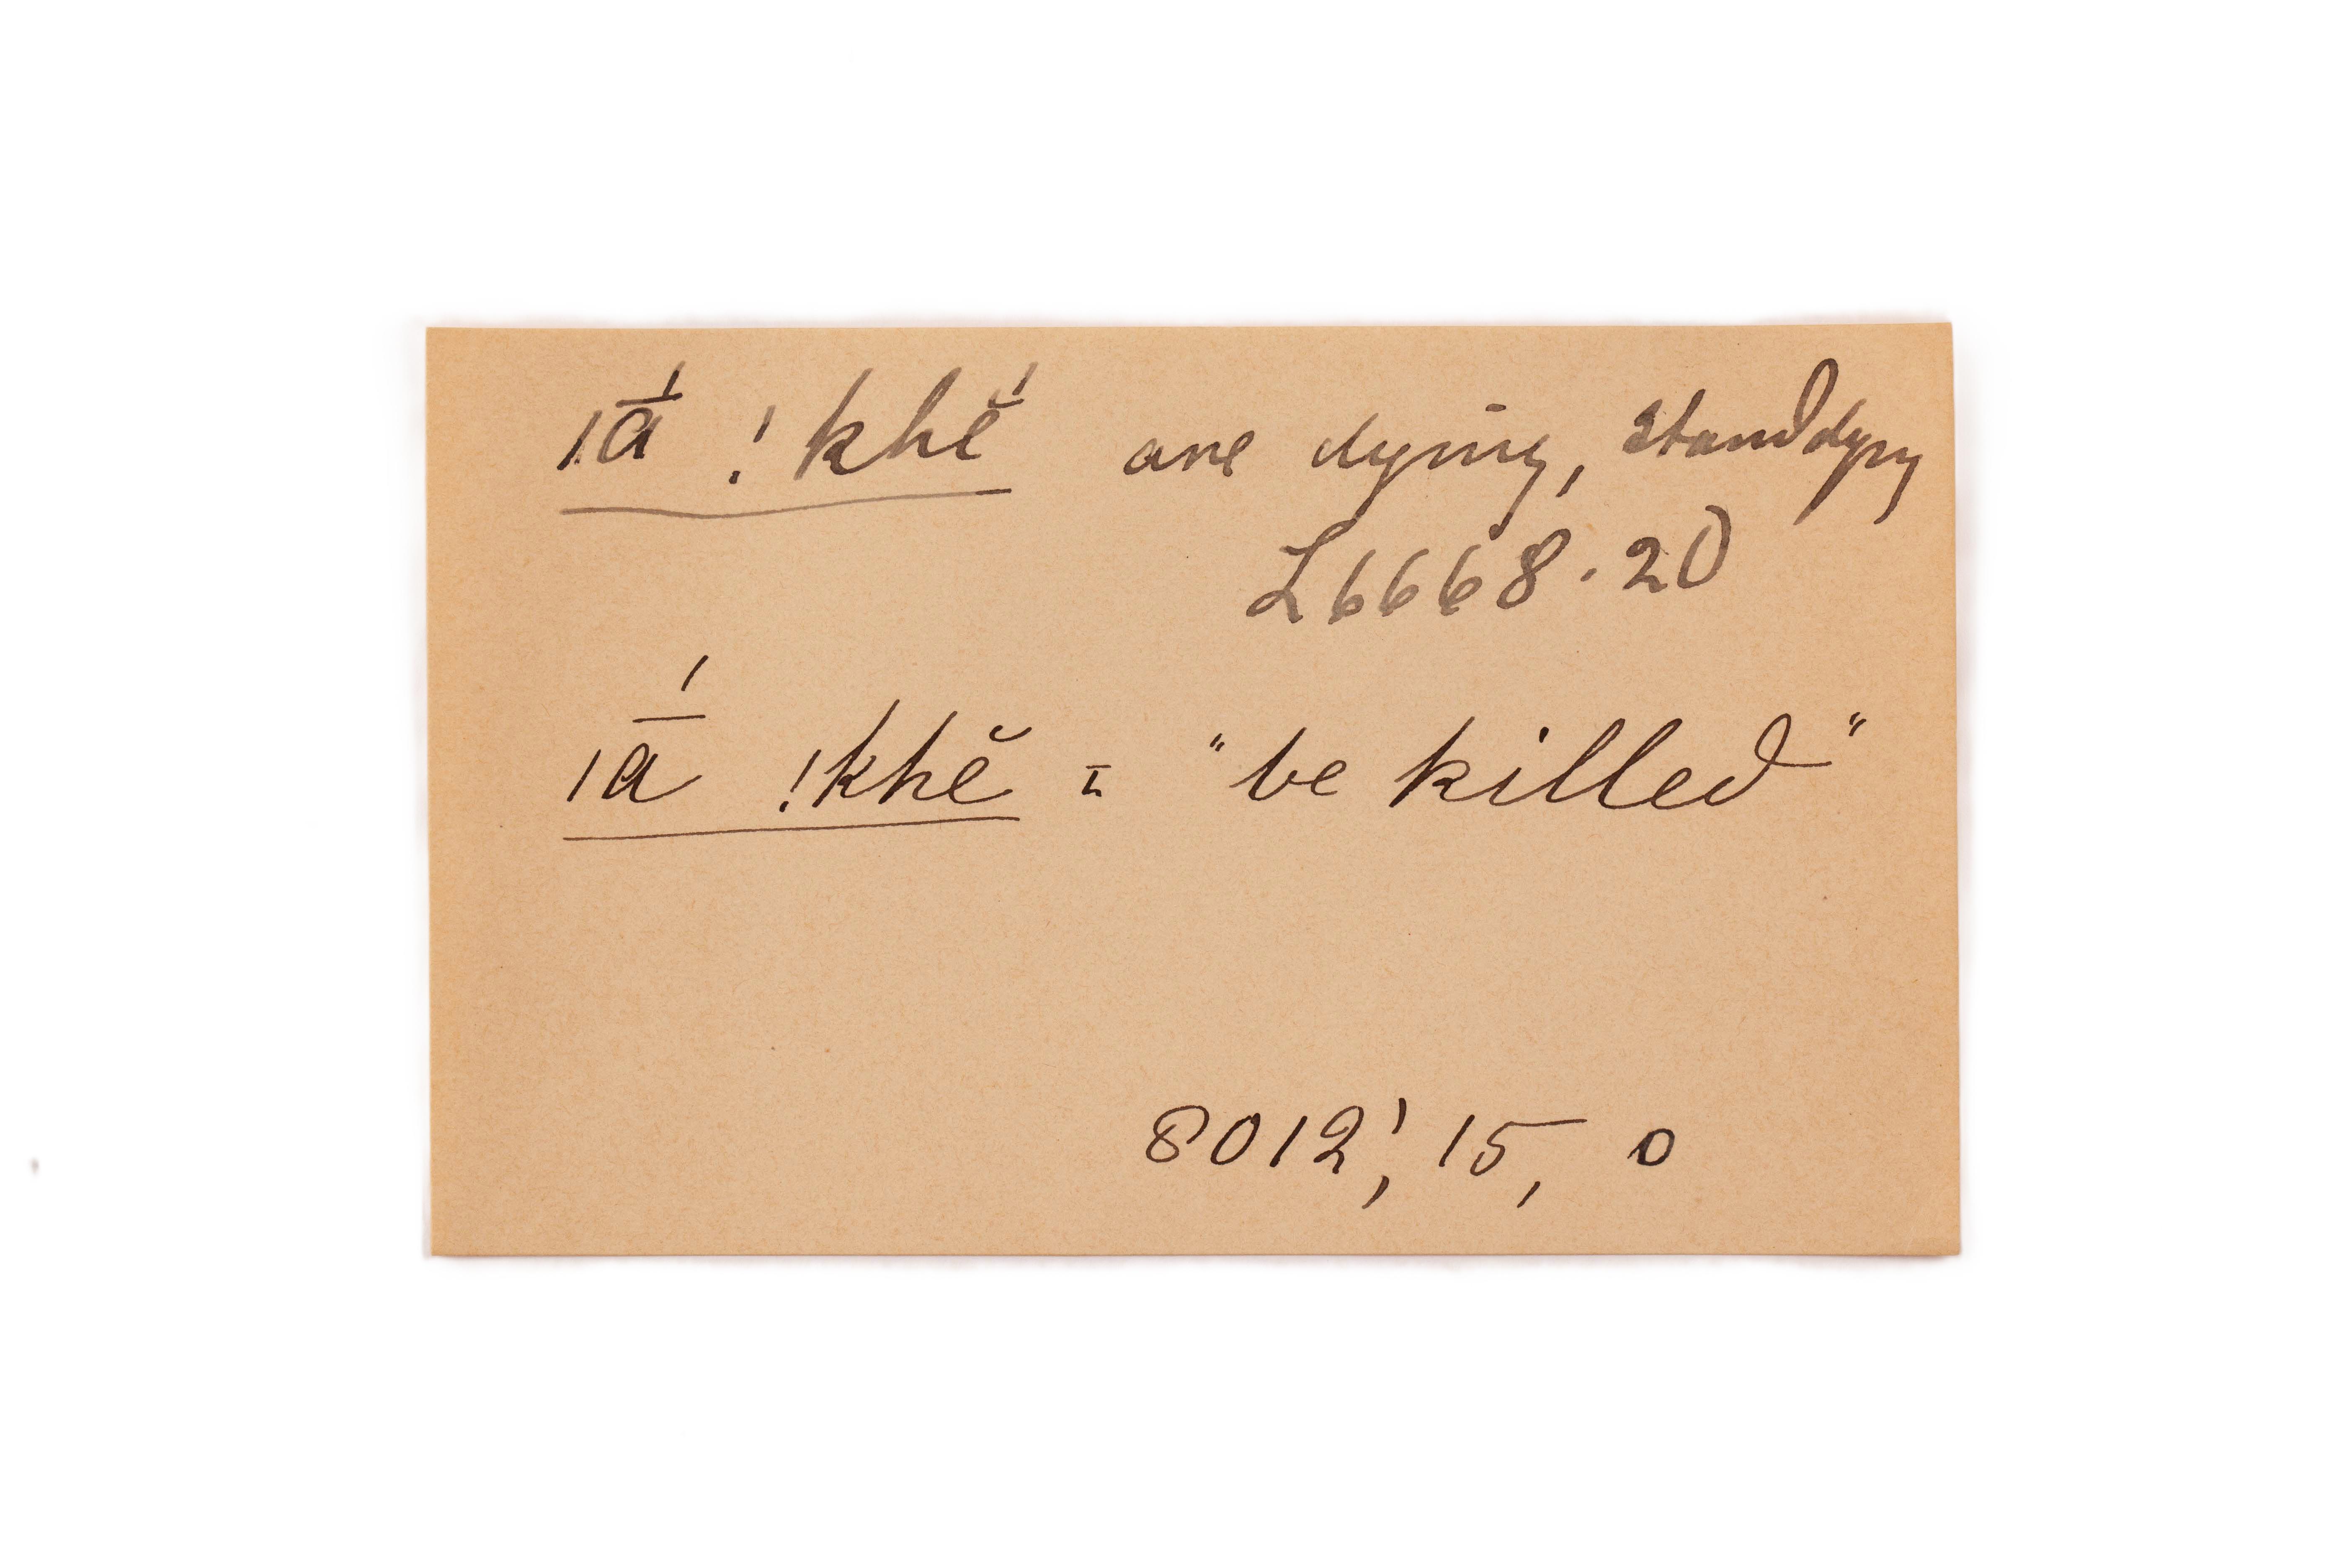 ǀā́ ǃkhĕ́ are dying, stand dyng
L 6668.20
ǀā́ ǃkhĕ = "be killed"
8012', 15, 0